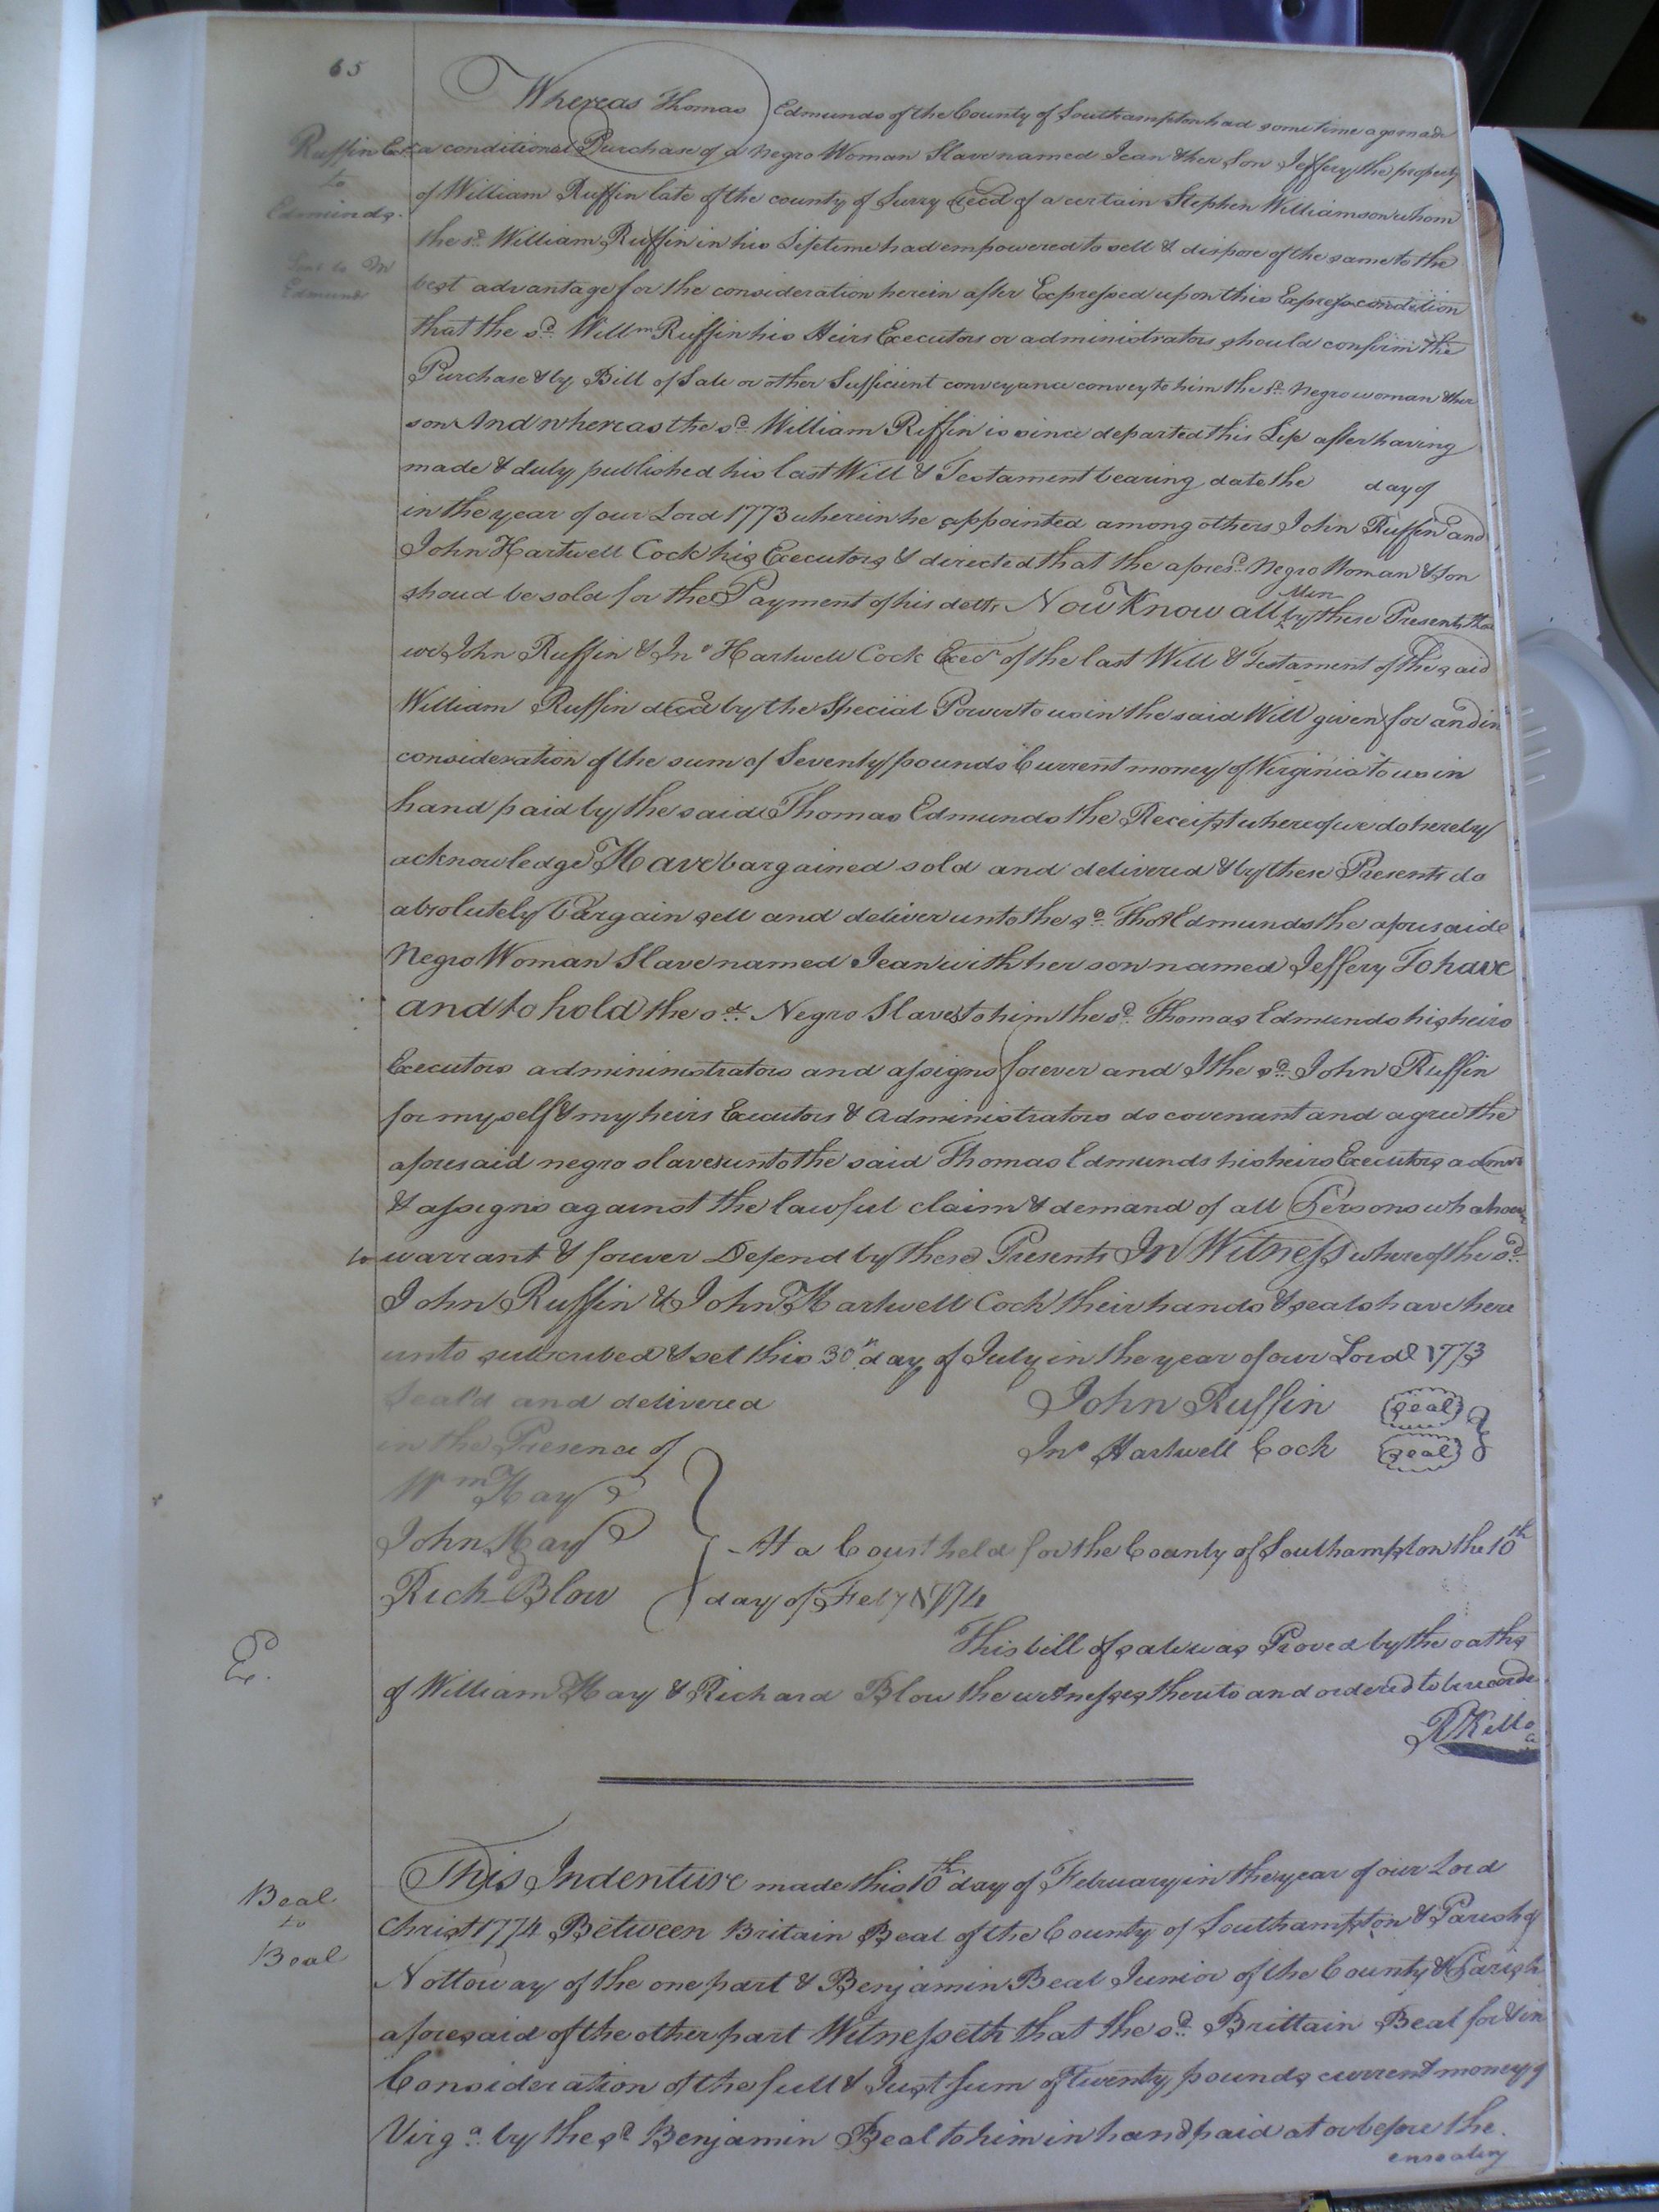 65
Whereas Thomas Edmunds of the County of Southampton had sometime ago made
Ruffin Exrs
to
Edmunds.
Sent to
Edmund
a conditional Purchase of a Negro Woman Slave named Jean & her Son Jeffery the property
of William Ruffin late of the county of Surry decd of a certain Stephen Williamson whom
the sd. William Ruffin in his Lifetime had empowered to sell & dispose of the same to the
best advantage for the consideration herein after Expressed upon this Express condition
that the sd. Willm Ruffin his Heirs Executors or administrators should confirm the
Purchase & by Bill of Sale or other Sufficient conveyance convey to him the sd. Negro woman & her
son And whereas the sd. William Riffin is since departed this Life after having
made & duly published his last Will & Testament bearing date the day of
in the year of our Lord 1773 wherein he appointed among others John Ruffin and
John Hartwell Cock his Executors & directed that the aforesd. Negro Woman & Son
shoud be sold for the Payment of his debts Now Know all Men by these Presents that
we John Ruffin & Jno Hartwell Cock Exrs of the last Will & Testament of the said
William Ruffin decd by the Special Power to us in the said Will given for and in
consideration of the sum of Seventy pounds Current money of Virginia to us in
hand paid by the said Thomas Edmunds the Receipt whereof we do hereby
acknowledge Have bargained sold and delivered & by these Presents do
absolutely bargain sell and deliver unto the sd. Thos Edmunds the aforesaid
Negro Woman Slave named Jean with her son named Jeffery To have
and to hold the sd. Negro Slaves to him the sd. Thomas Edmunds his heirs
Executors admininistrators and assigns forever and I the sd. John Ruffin
for myself & my heirs Executors & Administrators do covenant and agree the
aforesaid negro slaves unto the said Thomas Edmunds his heirs Executors admrs
& assigns against the lawful claim & demand of all Persons whatsoever
to warrant & forever Defend by these Presents In Witness whereof the sd.
John Ruffin & John Hartwell Cock their hands & seals have here
unto subscribed & set this 30th day of July in the year of our Lord 1773
Seald and delivered John Ruffin (seal)
in the Presence of Jno Hartwell Cock (seal)
Wm Hay
John Hay At a Court held for the County of Southampton the 10th
Richd Blow day of Feby 1774
This bill of sale was Proved by the oaths
E.
of William Hay & Richard Blow the witnesses thereto and ordered to be recorded
R Kello
This Indenture made this 10th day of February in the year of our Lord
Beal
to
Beal
Christ 1774 Between Britain Beal of the County of Southampton & Parish of
Nottoway of the one part & Benjamin Beal Junior of the County & Parish
aforesaid of the other part Witnesseth that the sd. Brittain Beal for & in
Consideration of the full & Just sum of Twenty pounds current money of
Virga. by the sd Benjamin Beal to him in hand paid at or before the
ensealing